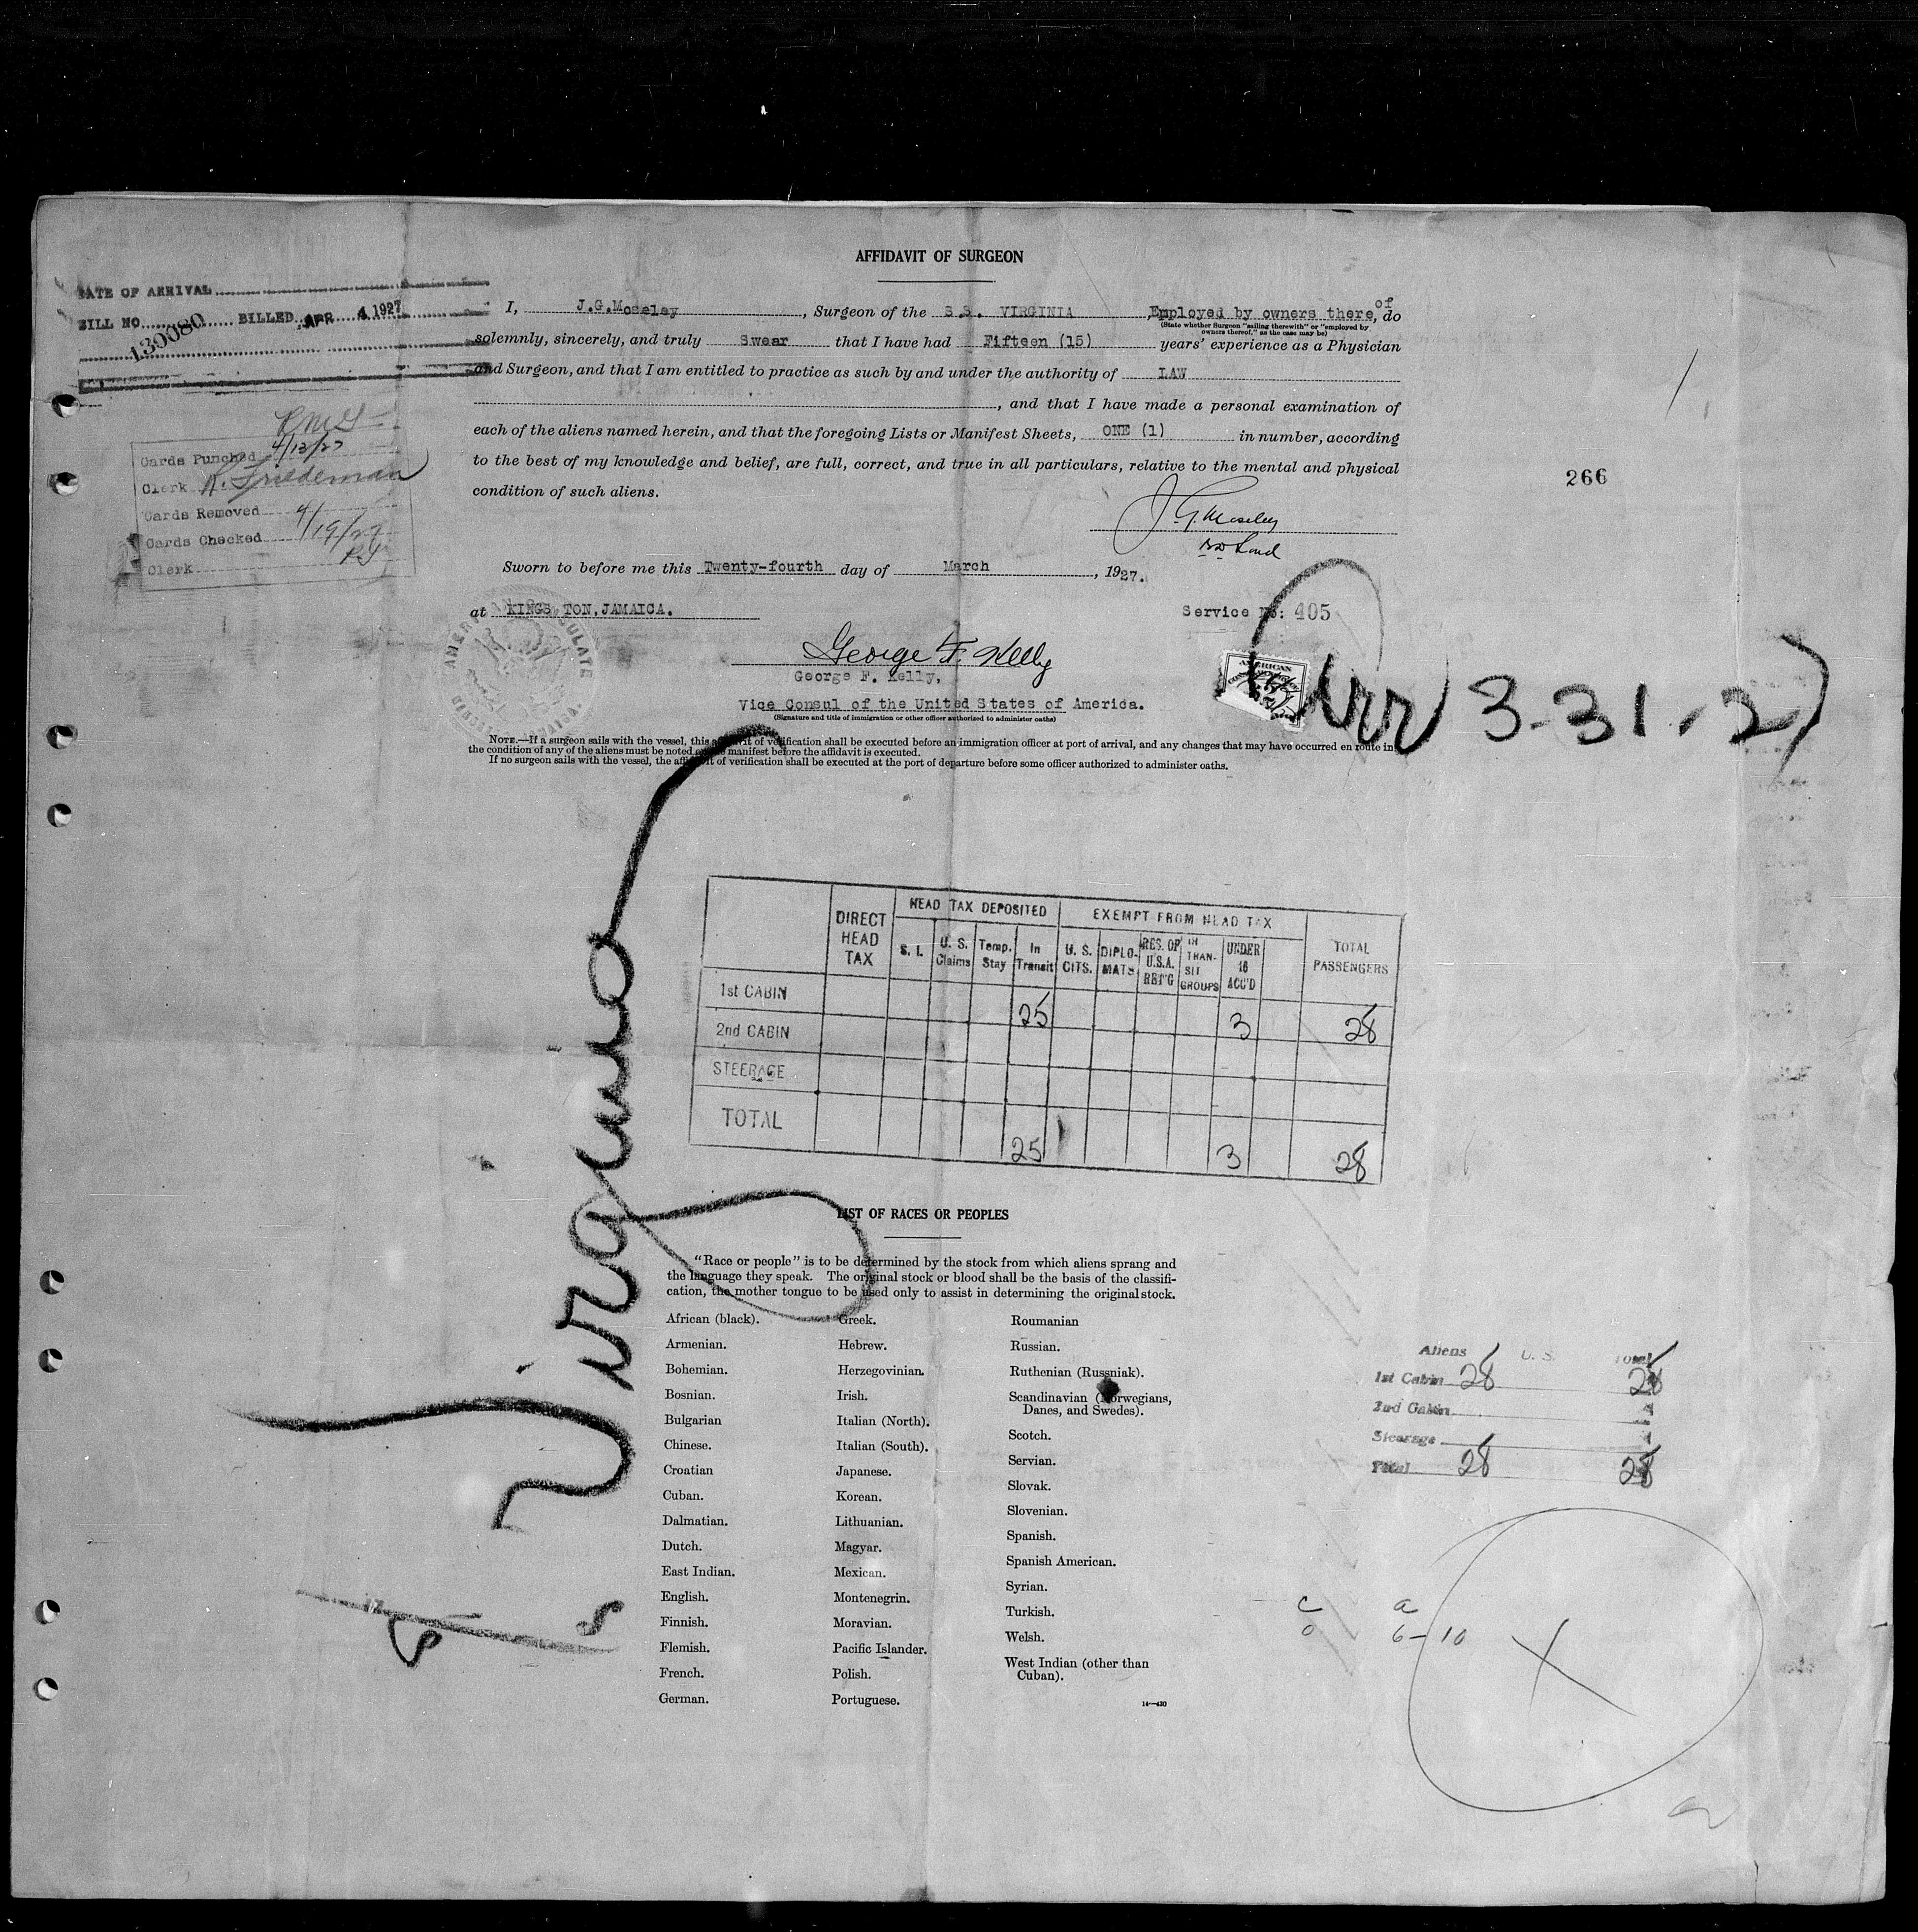 AFFIDAVIT OF SURGEON
DATE OF ARRIVAL
BILL NO. 139080 BILLED APR 4 1927
I, J.G.Moseley, Surgeon of the S.S. VIRGINIA, Employed by owners there, of do
(State whether Surgeon "sailing therewith" or "employed by
owners thereof," as the case may be)
solemnly, sincerely, and truly Swear that I have had Fifteen (15) years' experience as a Physician
and Surgeon, and that I am entitled to practice as such by and under the authority of LAW
, and that I have made a personal examination of
each of the aliens named herein, and that the foregoing Lists or Manifest Sheets, ONE (1) in number, according
to the best of my knowledge and belief, are full, correct, and true in all particulars, relative to the mental and physical
condition of such aliens.
Cards Punched 4/13/27
Clerk R. Friedeman
Cards Removed
Cards Checked 4/19/27
Clerk
266
J. G. Moseley
Sworn to before me this Twenty-fourth day of March, 1927.
at KINGS TON, JAMAICA.
Service No: 405
George F. Kelly
George F. Kelly,
Vice Consul of the United States of America.
(Signature and title of immigration or other officer authorized to administer oaths)
(Arr 3-31-27)
NOTE.—If a surgeon sails with the vessel, this affidavit of verification shall be executed before an immigration officer at port of arrival, and any changes that may have occurred en route in
the condition of any of the aliens must be noted on the manifest before the affidavit is executed.
If no surgeon sails with the vessel, the affidavit of verification shall be executed at the port of departure before some officer authorized to administer oaths.
DIRECT HEAD TAX
HEAD TAX DEPOSITED
EXEMPT FROM HEAD TAX
TOTAL PASSENGERS
S. I.
U. S. Claims
Temp. Stay
In Transit
U. S. CITS.
DIPLO-MATS
RES. OF U.S.A. RET'G
IN TRAN-SIT GROUPS
UNDER 16 ACC'D
1st CABIN 25 3 28
2nd CABIN
STEERAGE
TOTAL 25 3 28
SS Virginia
LIST OF RACES OR PEOPLES
"Race or people" is to be determined by the stock from which aliens sprang and
the language they speak. The original stock or blood shall be the basis of the classifi-
cation, the mother tongue to be used only to assist in determining the original stock.
African (black).
Armenian.
Bohemian.
Bosnian.
Bulgarian
Chinese.
Croatian
Cuban.
Dalmatian.
Dutch.
East Indian.
English.
Finnish.
Flemish.
French.
German.
Greek.
Hebrew.
Herzegovinian.
Irish.
Italian (North).
Italian (South).
Japanese.
Korean.
Lithuanian.
Magyar.
Mexican.
Montenegrin.
Moravian.
Pacific Islander.
Polish.
Portuguese.
Roumanian
Russian.
Ruthenian (Russniak).
Scandinavian (Norwegians,
Danes, and Swedes).
Scotch.
Servian.
Slovak.
Slovenian.
Spanish.
Spanish American.
Syrian.
Turkish.
Welsh.
West Indian (other than
Cuban).
14—430
Aliens U. S. Total
1st Cabin 28 28
2nd Cabin
Steerage
Total 28 28
c a
0 6-10